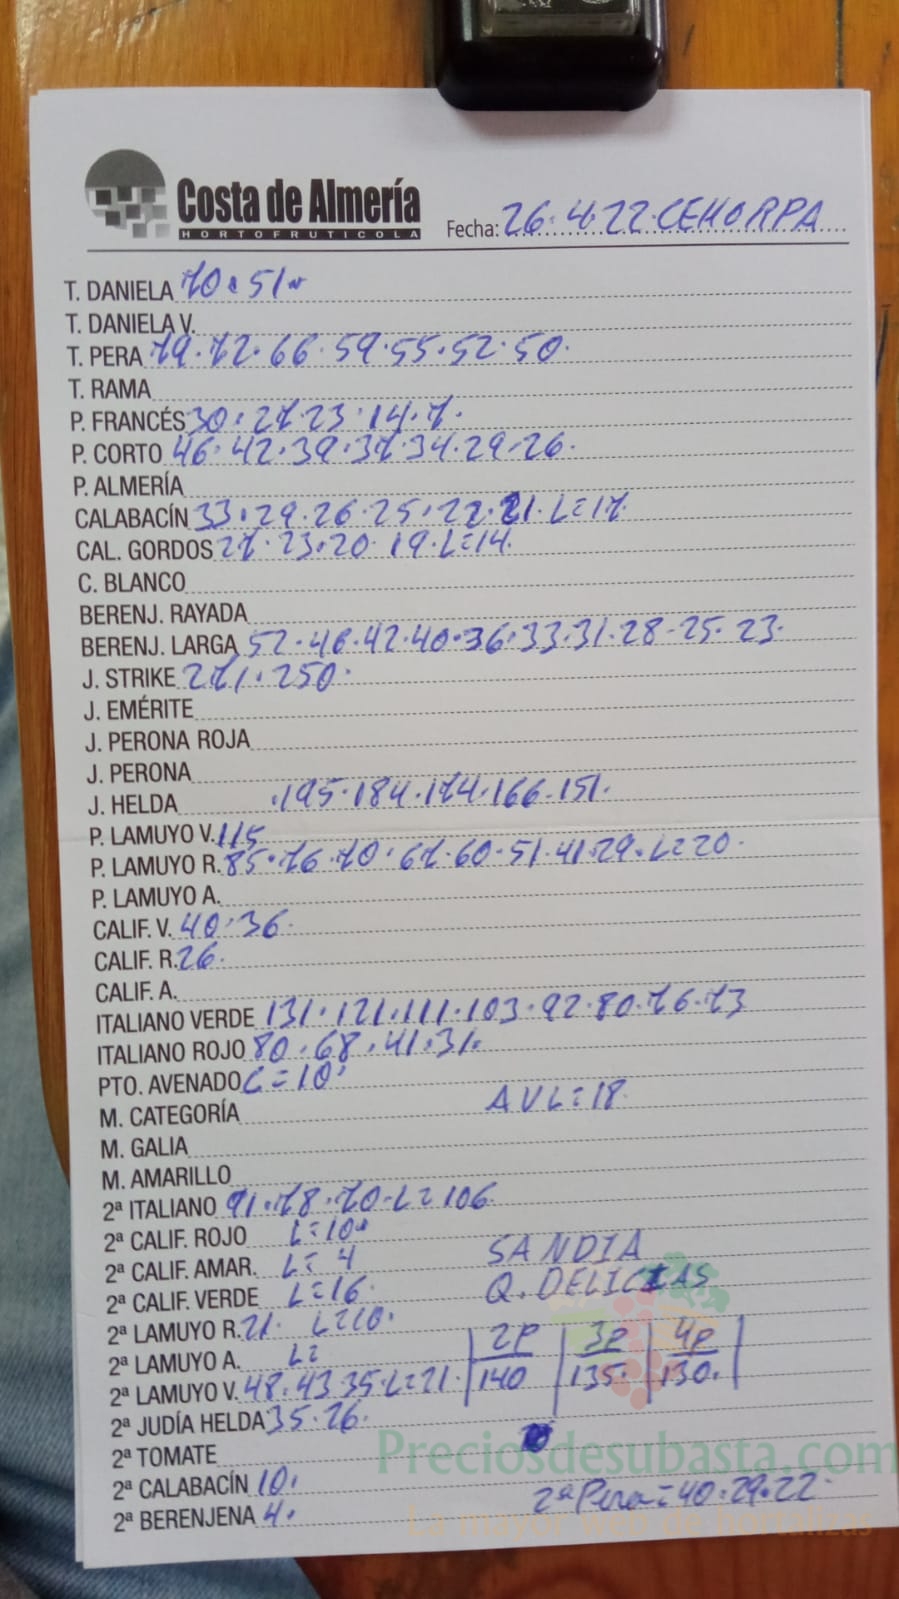 Costa de Almería
HORTOFRUTICOLA
Fecha: 26.4.22.CEHORPA
T. DANIELA 70.51
T. DANIELA V.
T. PERA 79.72.66.59.55.52.50.
T. RAMA
P. FRANCÉS 30.27.23.14.7.
P. CORTO 46.42.39.37.34.29.26.
P. ALMERÍA
CALABACÍN 33.29.26.25.22.21.L=17.
CAL. GORDOS 27.23.20.19.L=14.
C. BLANCO
BERENJ. RAYADA
BERENJ. LARGA 52.46.42.40.36.33.31.28.25.23.
J. STRIKE 271.250.
J. EMÉRITE
J. PERONA ROJA
J. PERONA
J. HELDA .195.184.174.166.151.
P. LAMUYO V. 115
P. LAMUYO R. 85.76.70.67.60.51.41.29.L=20.
P. LAMUYO A.
CALIF. V. 40.36.
CALIF. R. 26.
CALIF. A.
ITALIANO VERDE 131.121.111.103.92.80.76.73
ITALIANO ROJO 80.68.41.31.
PTO. AVENADO L=10.
M. CATEGORÍA AVL=18.
M. GALIA
M. AMARILLO
2ª ITALIANO 91.78.70.L=106
2ª CALIF. ROJO L=10.
2ª CALIF. AMAR. L=4 SANDIA
2ª CALIF. VERDE L=16. Q.DELICIAS
2ª LAMUYO R. 21. L=10. 2P 3P 4P
2ª LAMUYO A. L=
2ª LAMUYO V. 48.43.35.L=21. 140 135. 130.
2ª JUDÍA HELDA 35.26.
2ª TOMATE
Preciosdesubasta.com
2ª CALABACÍN 10.
2ª BERENJENA 4. 2ª Pera=40.29.22.
La mayor web de hortalizas